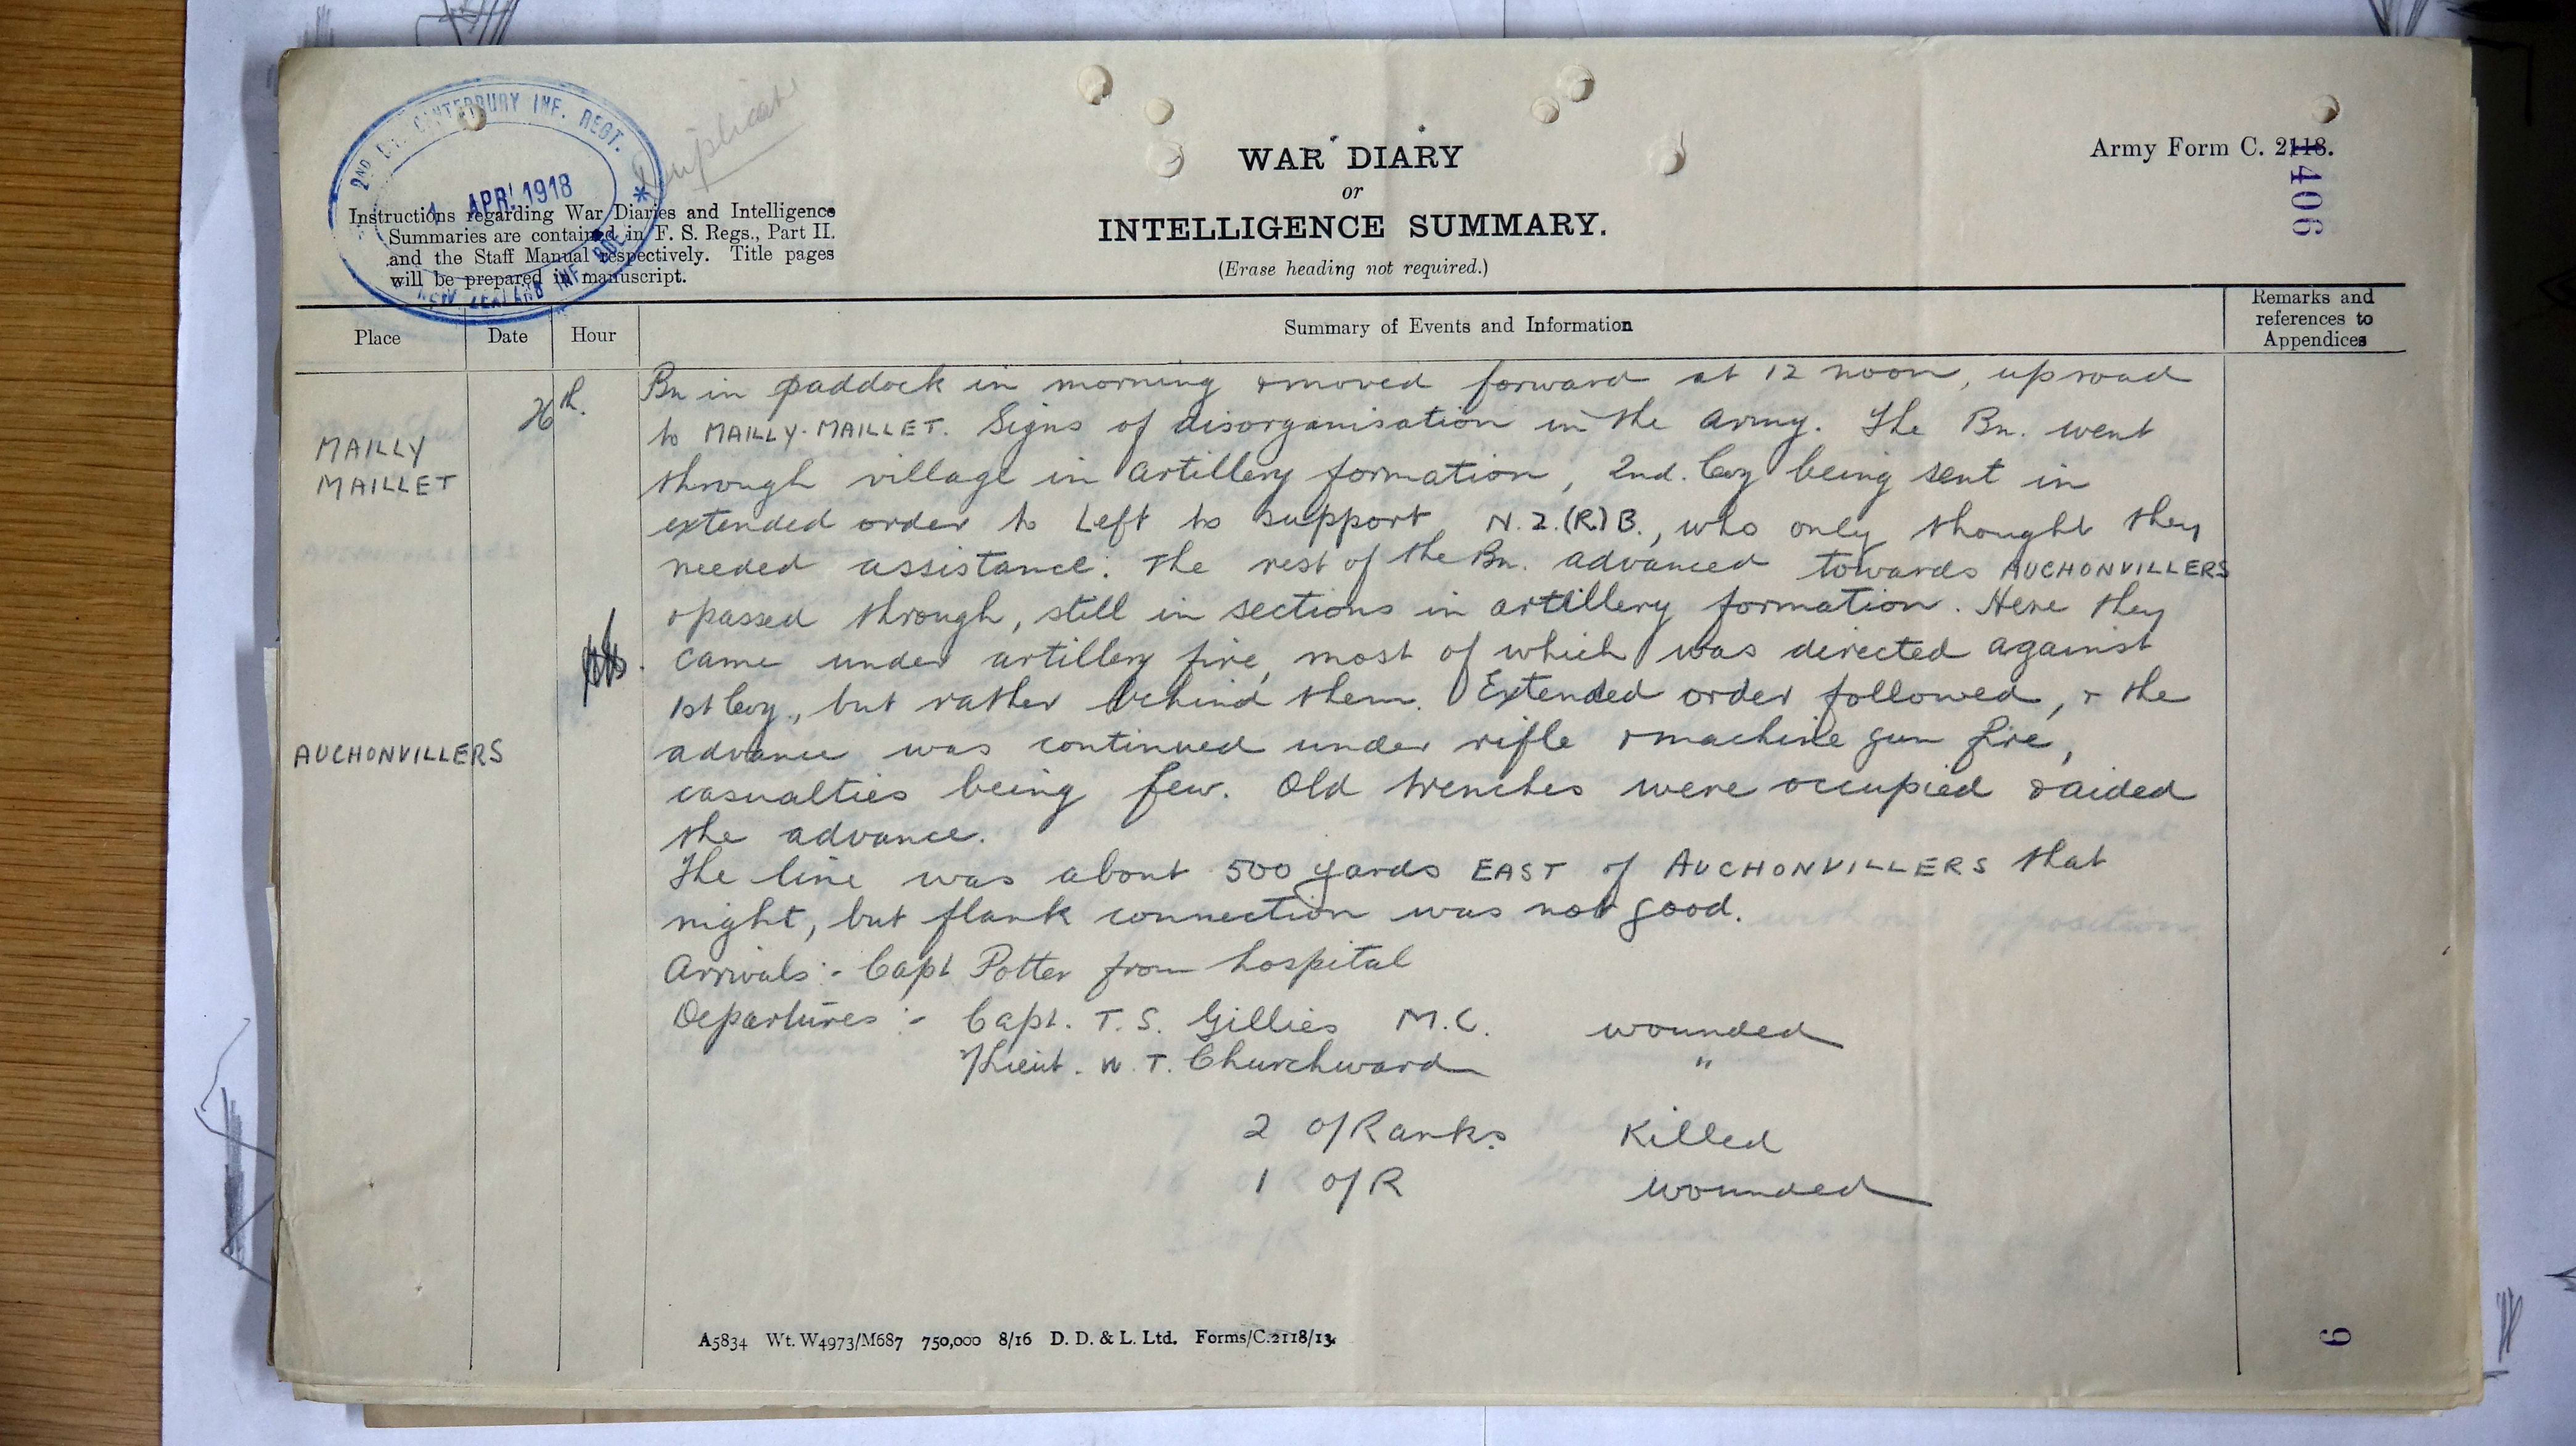 2ND BN. CANTERBURY INF. REGT.
APR! 1918
NEW ZEALAND INF. BDE
Duplicate
Instructions regarding War Diaries and Intelligence
Summaries are contained in F. S. Regs., Part II.
and the Staff Manual respectively. Title pages
will be prepared in manuscript.
WAR DIARY
or
INTELLIGENCE SUMMARY.
(Erase heading not required.)
Army Form C. 2118.
1406
Place
Date
Hour
Summary of Events and Information
Remarks and
references to
Appendices
MAILLY
MAILLET
26th.
Bn in paddock in morning & moved forward at 12 noon, up road
to MAILLY-MAILLET. Signs of disorganisation in the Army. The Bn. went
through village in artillery formation, 2nd. Coy being sent in
extended order to Left to support N.Z.(R.)B., who only thought they
needed assistance: the rest of the Bn. advanced towards AUCHONVILLERS
& passed through, still in sections in artillery formation. Here they
came under artillery fire, most of which was directed against
1st Coy., but rather behind them. Extended order followed, & the
AUCHONVILLERS
advance was continued under rifle & machine gun fire,
casualties being few. Old trenches were occupied & aided
the advance.
The line was about 500 yards EAST of AUCHONVILLERS that
night, but flank connection was not good.
Arrivals :- Capt Potter from hospital
Departures :- Capt. T. S. Gillies M.C. wounded
2/Lieut. W. T. Churchward "
2 O/Ranks Killed
1 O/R wounded
A5834 Wt. W4973/M687 750,000 8/16 D. D. & L. Ltd. Forms/C.2118/13.
6